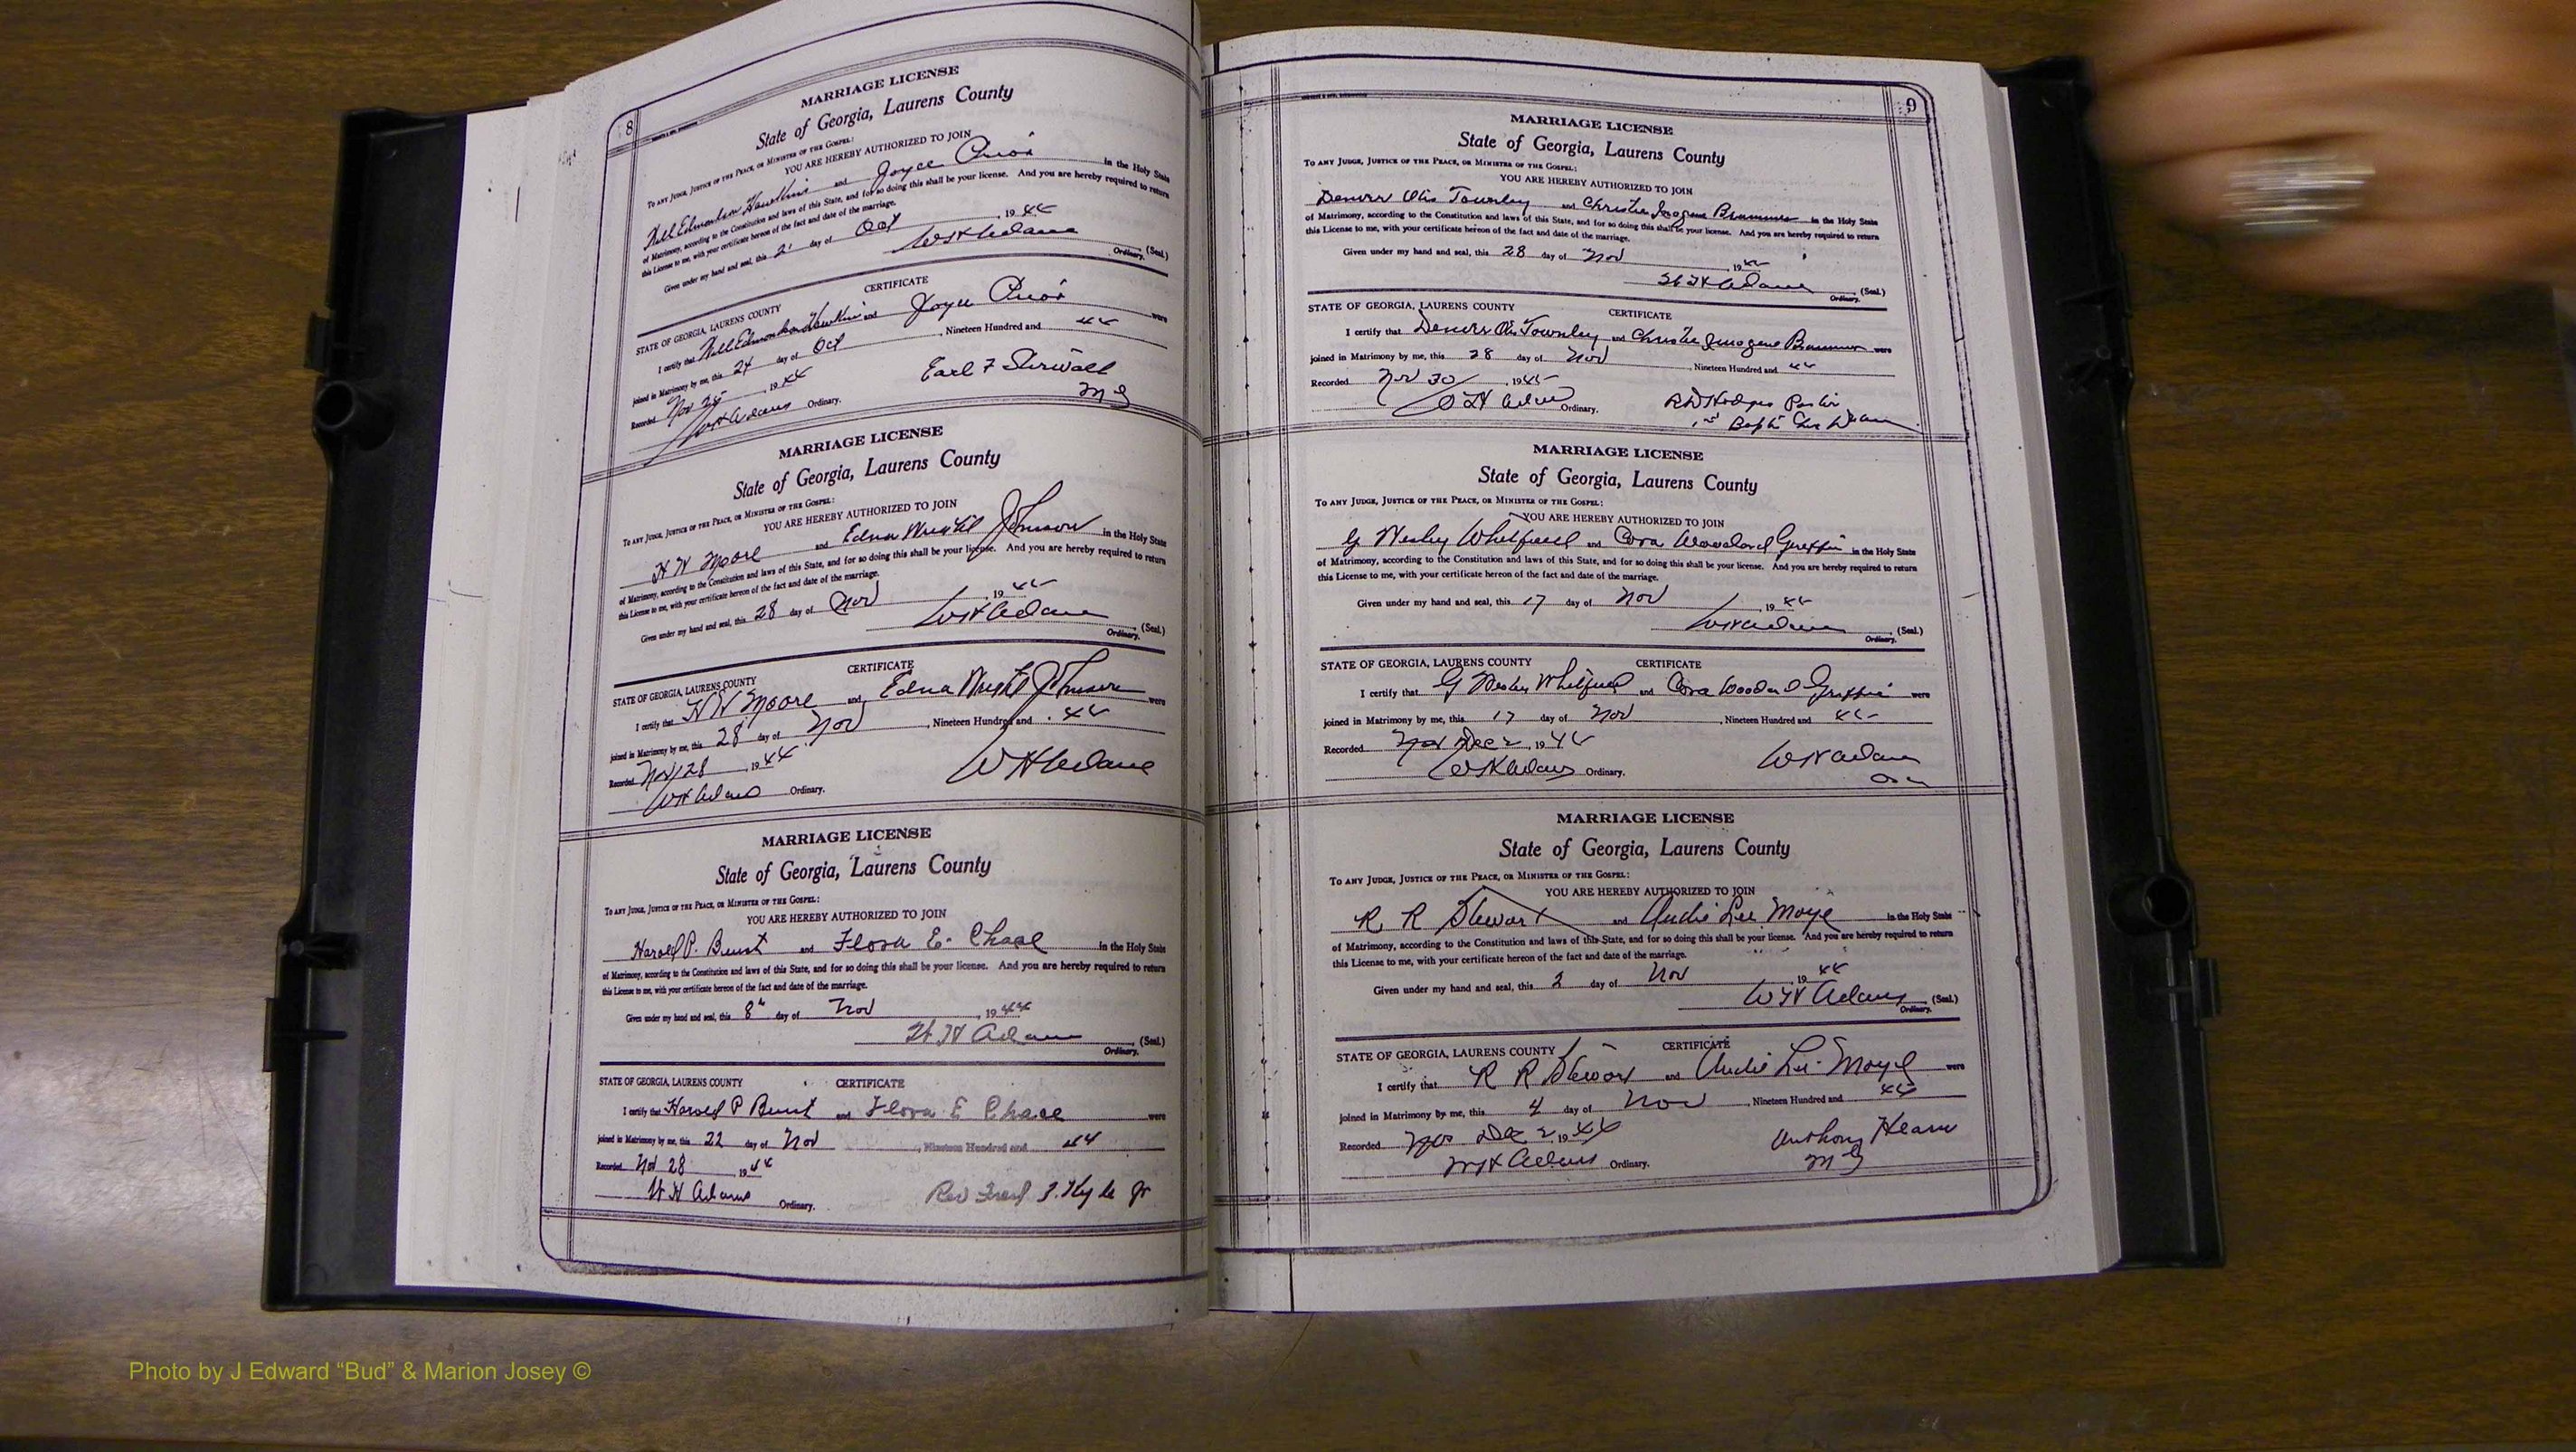 8
MARRIAGE LICENSE
State of Georgia, Laurens County
To ANY JUDGE, JUSTICE OF THE PEACE, OR MINISTER OF THE GOSPEL:
YOU ARE HEREBY AUTHORIZED TO JOIN
and Joyce in the Holy State
of Matrimony, according to the Constitution and laws of this State, and for so doing this shall be your license. And you are hereby required to return
this License to me, with your certificate hereon of the fact and date of the marriage.
Given under my hand and seal, this day of Oct , 19 44
W H Adams (Seal.)
Ordinary.
CERTIFICATE
STATE OF GEORGIA, LAURENS COUNTY
I certify that and Joyce were
joined in Matrimony by me, this 24 day of Oct , Nineteen Hundred and 44
Recorded Nov , 19 44 Earl F
W H Adams Ordinary. M G
MARRIAGE LICENSE
State of Georgia, Laurens County
To ANY JUDGE, JUSTICE OF THE PEACE, OR MINISTER OF THE GOSPEL:
YOU ARE HEREBY AUTHORIZED TO JOIN
H W Moore and Edna Johnson in the Holy State
of Matrimony, according to the Constitution and laws of this State, and for so doing this shall be your license. And you are hereby required to return
this License to me, with your certificate hereon of the fact and date of the marriage.
Given under my hand and seal, this 28 day of Nov , 19 44
W H Adams (Seal.)
Ordinary.
CERTIFICATE
STATE OF GEORGIA, LAURENS COUNTY
I certify that H W Moore and Edna Johnson were
joined in Matrimony by me, this 28 day of Nov , Nineteen Hundred and 44
Recorded Nov 28 , 19 44 W H Adams
W H Adams Ordinary.
MARRIAGE LICENSE
State of Georgia, Laurens County
To ANY JUDGE, JUSTICE OF THE PEACE, OR MINISTER OF THE GOSPEL:
YOU ARE HEREBY AUTHORIZED TO JOIN
Harold P. and Flora E. Chase in the Holy State
of Matrimony, according to the Constitution and laws of this State, and for so doing this shall be your license. And you are hereby required to return
this License to me, with your certificate hereon of the fact and date of the marriage.
Given under my hand and seal, this 8th day of Nov , 19 44
W H Adams (Seal.)
Ordinary.
STATE OF GEORGIA, LAURENS COUNTY CERTIFICATE
I certify that Harold P and Flora E Chase were
joined in Matrimony by me, this 22 day of Nov , Nineteen Hundred and 44
Recorded Nov 28 , 19 44
W H Adams Ordinary. Rev Fred J. Kyle Jr
9
MARRIAGE LICENSE
State of Georgia, Laurens County
To ANY JUDGE, JUSTICE OF THE PEACE, OR MINISTER OF THE GOSPEL:
YOU ARE HEREBY AUTHORIZED TO JOIN
Otis Townley and Imogene in the Holy State
of Matrimony, according to the Constitution and laws of this State, and for so doing this shall be your license. And you are hereby required to return
this License to me, with your certificate hereon of the fact and date of the marriage.
Given under my hand and seal, this 28 day of Nov , 19 44
W H Adams (Seal.)
Ordinary.
STATE OF GEORGIA, LAURENS COUNTY CERTIFICATE
I certify that Otis Townley and Imogene were
joined in Matrimony by me, this 28 day of Nov , Nineteen Hundred and 44
Recorded Nov 30 , 19 44
W H Adams Ordinary. Hodges Pastor
1st Bapt
MARRIAGE LICENSE
State of Georgia, Laurens County
To ANY JUDGE, JUSTICE OF THE PEACE, OR MINISTER OF THE GOSPEL:
YOU ARE HEREBY AUTHORIZED TO JOIN
G Wesley Whitfield and Cora Woodard Griffin in the Holy State
of Matrimony, according to the Constitution and laws of this State, and for so doing this shall be your license. And you are hereby required to return
this License to me, with your certificate hereon of the fact and date of the marriage.
Given under my hand and seal, this 17 day of Nov , 19 44
W H Adams (Seal.)
Ordinary.
STATE OF GEORGIA, LAURENS COUNTY CERTIFICATE
I certify that G Wesley Whitfield and Cora Woodard Griffin were
joined in Matrimony by me, this 17 day of Nov , Nineteen Hundred and 44
Recorded Dec 2 , 19 44 W H Adams
W H Adams Ordinary.
MARRIAGE LICENSE
State of Georgia, Laurens County
To ANY JUDGE, JUSTICE OF THE PEACE, OR MINISTER OF THE GOSPEL:
YOU ARE HEREBY AUTHORIZED TO JOIN
R R Stewart and Audie Lee Moye in the Holy State
of Matrimony, according to the Constitution and laws of this State, and for so doing this shall be your license. And you are hereby required to return
this License to me, with your certificate hereon of the fact and date of the marriage.
Given under my hand and seal, this 2 day of Nov 19 44
W H Adams (Seal.)
Ordinary.
STATE OF GEORGIA, LAURENS COUNTY CERTIFICATE
I certify that R R Stewart and Audie Lee Moye were
joined in Matrimony by me, this 4 day of Nov , Nineteen Hundred and 44
Recorded Dec 2 , 19 44 Anthony Hearn
W H Adams Ordinary. M G
Photo by J Edward “Bud” & Marion Josey ©